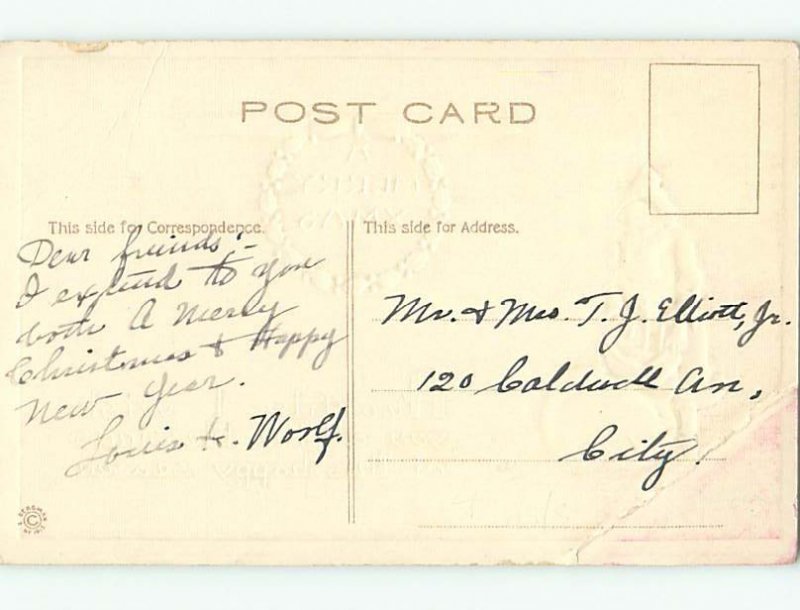 POST CARD
This side for Correspondence.
This side for Address.
Dear friends:-
I extend to you
both A Merry
Christmas & Happy
New Year.
Louis H. Woolf.
Mr. & Mrs. T. J. Elliott, Jr.
120 Caldwell Av.,
City.
MERRY
XMAS